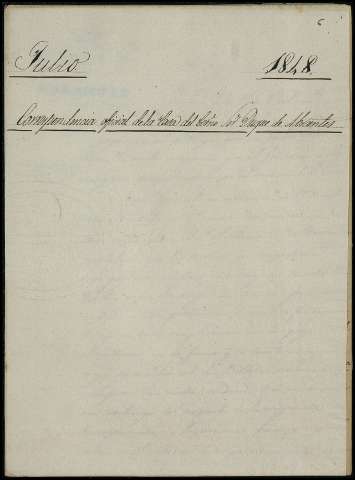 6
Julio
1848
Correspondencia oficial de la Casa del Exmo Sor Duque de Abrantes